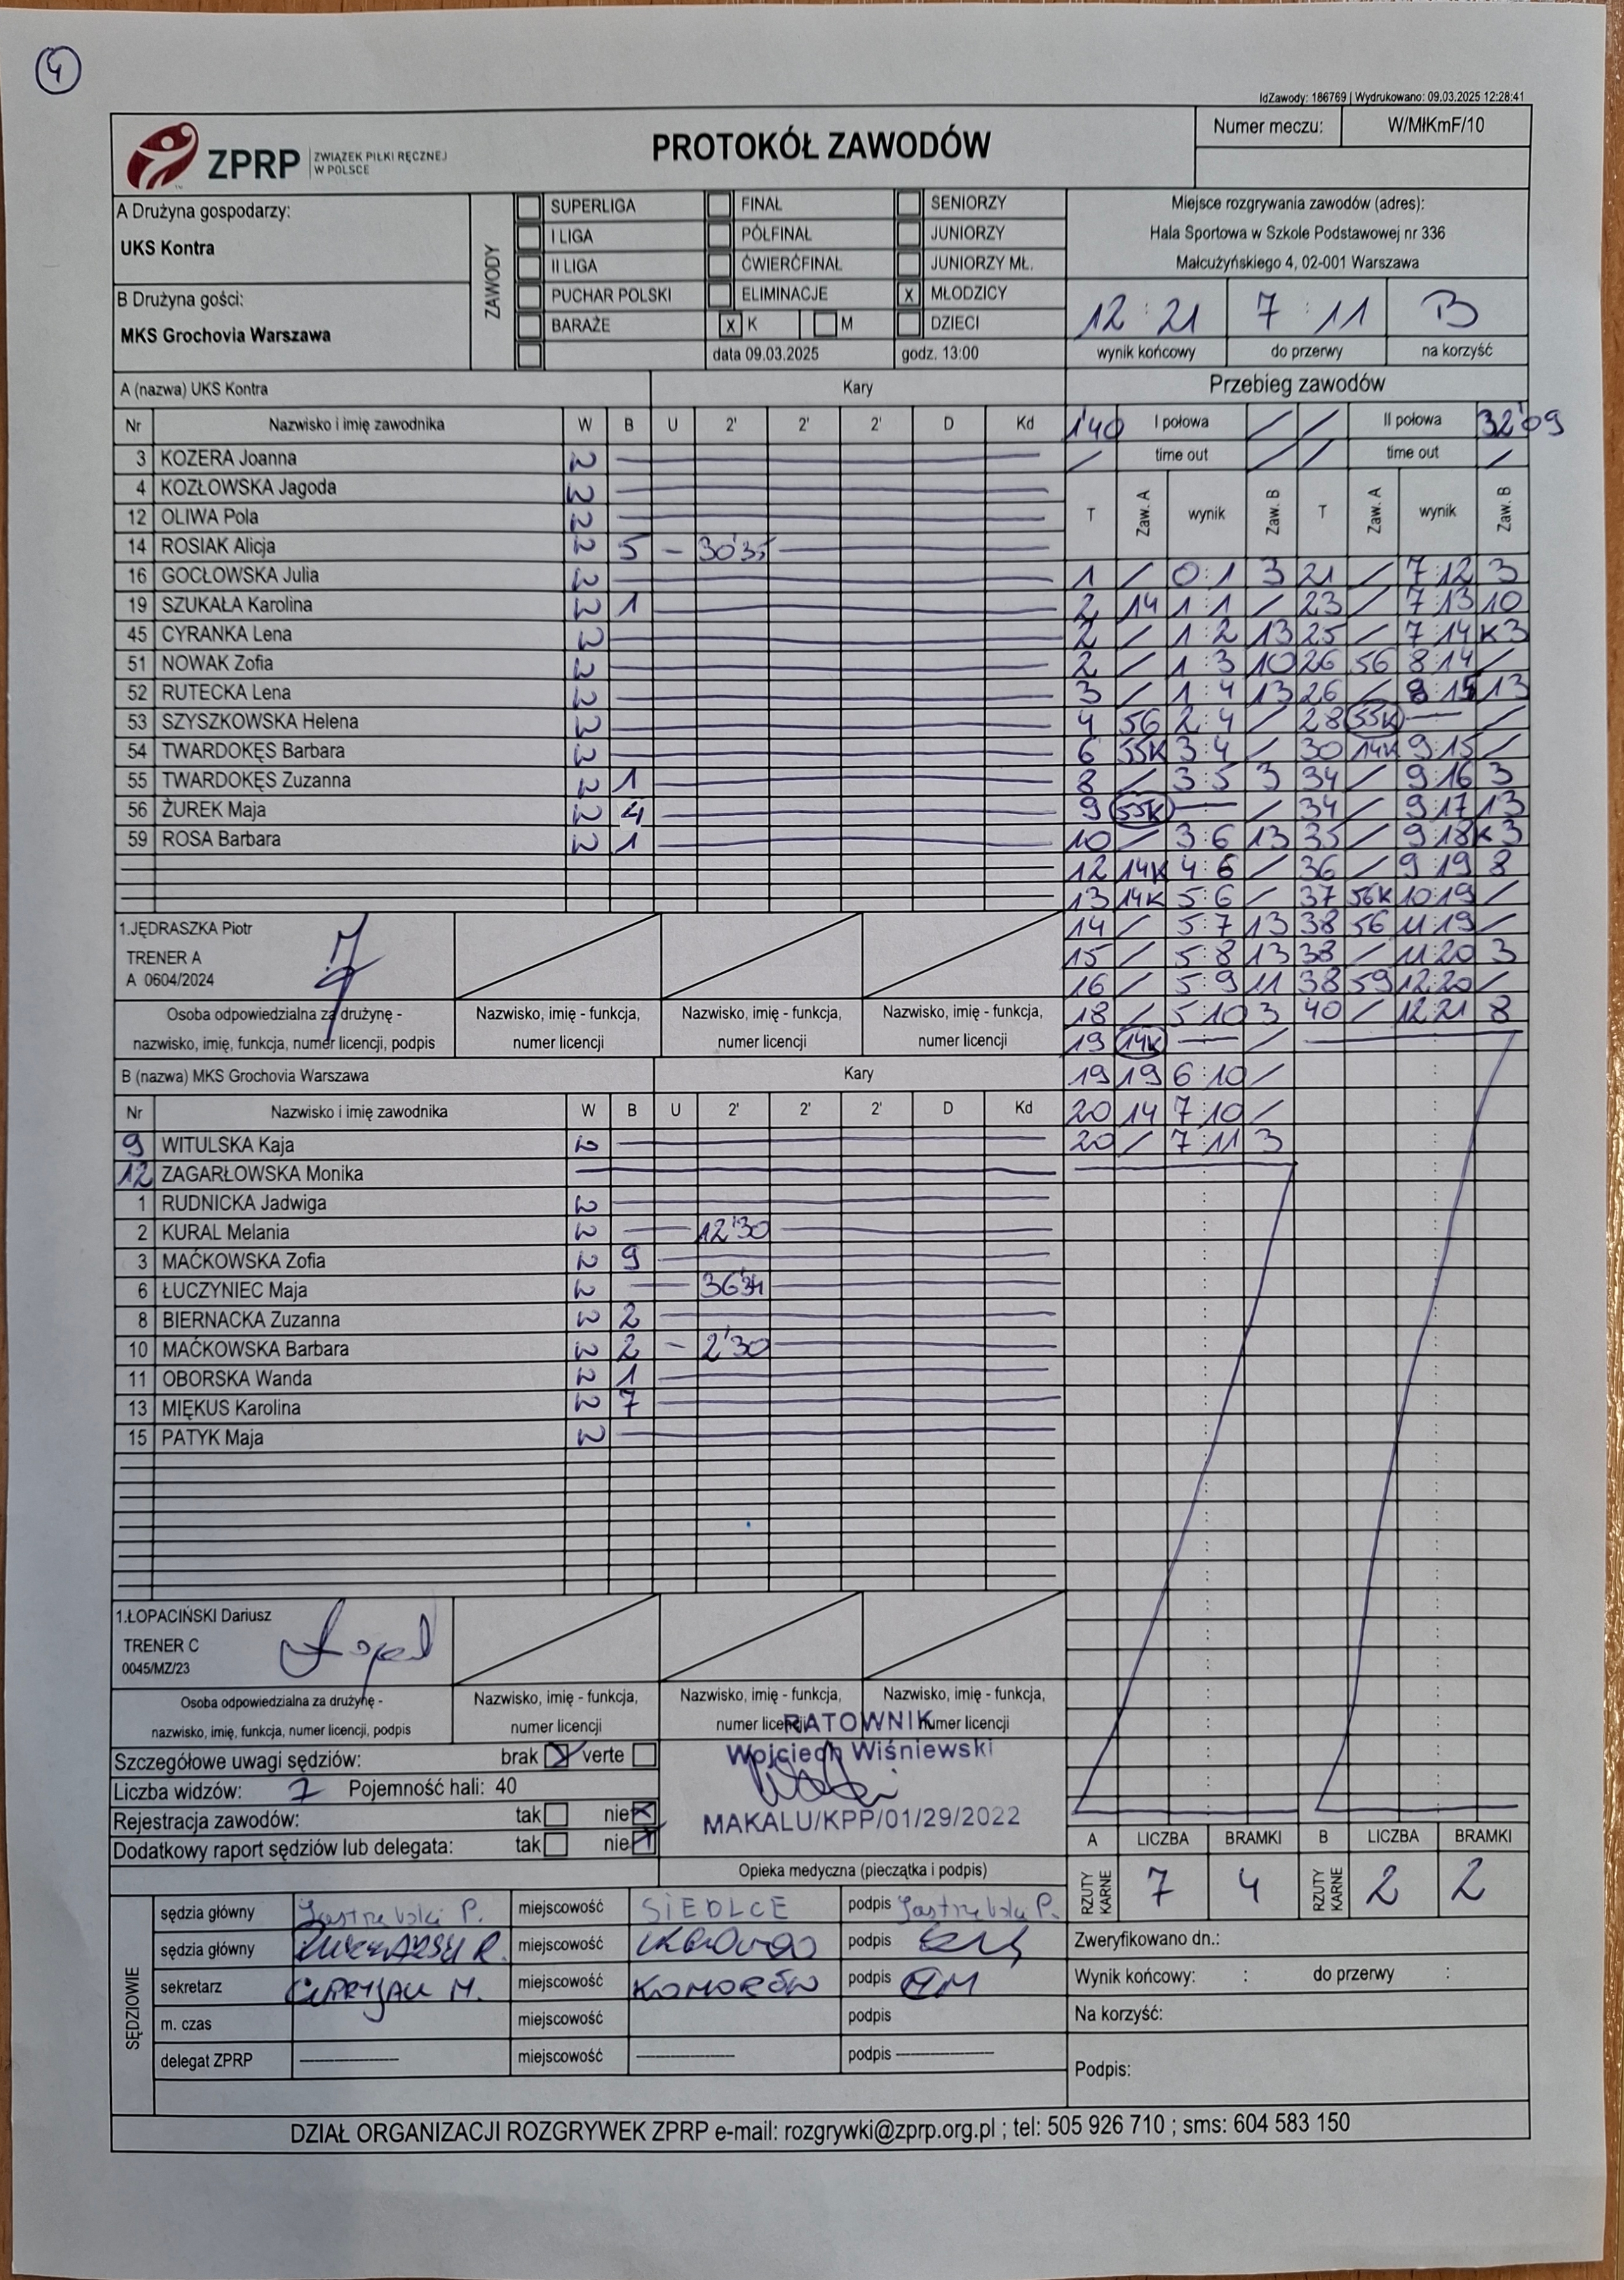 4
IdZawody: 186769 | Wydrukowano: 09.03.2025 12:28:41
ZPRP ZWIĄZEK PIŁKI RĘCZNEJ W POLSCE
PROTOKÓŁ ZAWODÓW
Numer meczu: W/MłKmF/10
A Drużyna gospodarzy:
UKS Kontra
B Drużyna gości:
MKS Grochovia Warszawa
ZAWODY
SUPERLIGA FINAŁ SENIORZY
I LIGA PÓŁFINAŁ JUNIORZY
II LIGA ĆWIERĆFINAŁ JUNIORZY MŁ.
PUCHAR POLSKI ELIMINACJE X MŁODZICY
BARAŻE X K M DZIECI
data 09.03.2025 godz. 13:00
Miejsce rozgrywania zawodów (adres):
Hala Sportowa w Szkole Podstawowej nr 336
Małcużyńskiego 4, 02-001 Warszawa
12 : 21 7 : 11 B
wynik końcowy do przerwy na korzyść
A (nazwa) UKS Kontra Kary
Nr Nazwisko i imię zawodnika W B U 2' 2' 2' D Kd
3 KOZERA Joanna W
4 KOZŁOWSKA Jagoda W
12 OLIWA Pola W
14 ROSIAK Alicja W 5 - 30'35
16 GOCŁOWSKA Julia W
19 SZUKAŁA Karolina W 1
45 CYRANKA Lena W
51 NOWAK Zofia W
52 RUTECKA Lena W
53 SZYSZKOWSKA Helena W
54 TWARDOKĘS Barbara W
55 TWARDOKĘS Zuzanna W 1
56 ŻUREK Maja W 4
59 ROSA Barbara W 1
1.JĘDRASZKA Piotr
TRENER A
A 0604/2024
Osoba odpowiedzialna za drużynę - Nazwisko, imię - funkcja, Nazwisko, imię - funkcja, Nazwisko, imię - funkcja,
nazwisko, imię, funkcja, numer licencji, podpis numer licencji numer licencji numer licencji
B (nazwa) MKS Grochovia Warszawa Kary
Nr Nazwisko i imię zawodnika W B U 2' 2' 2' D Kd
9 WITULSKA Kaja W
12 ZAGARŁOWSKA Monika
1 RUDNICKA Jadwiga W
2 KURAL Melania W 12'30
3 MAĆKOWSKA Zofia W 9
6 ŁUCZYNIEC Maja W
8 BIERNACKA Zuzanna W 2
10 MAĆKOWSKA Barbara W 2 - 2'30
11 OBORSKA Wanda W 1
13 MIĘKUS Karolina W 7
15 PATYK Maja W
1.ŁOPACIŃSKI Dariusz
TRENER C
0045/MZ/23
Osoba odpowiedzialna za drużynę - Nazwisko, imię - funkcja, Nazwisko, imię - funkcja, Nazwisko, imię - funkcja,
nazwisko, imię, funkcja, numer licencji, podpis numer licencji numer licencji numer licencji
Przebieg zawodów
1'40 I połowa / / II połowa 32'09
/ time out / / time out /
T Zaw. A wynik Zaw. B T Zaw. A wynik Zaw. B
1 / 0:1 3 21 / 7:12 3
2 14 1:1 / 23 / 7:13 10
2 / 1:2 13 25 / 7:14 K3
2 / 1:3 10 26 56 8:14 /
3 / 1:4 13 26 / 8:15 13
4 56 2:4 / 28 55K — /
6 55K 3:4 / 30 14K 9:15 /
8 / 3:5 3 34 / 9:16 3
9 55K — / 34 / 9:17 13
10 / 3:6 13 35 / 9:18 K3
12 14K 4:6 / 36 / 9:19 8
13 14K 5:6 / 37 56K 10:19 /
14 / 5:7 13 38 56 11:19 /
15 / 5:8 13 38 / 11:20 3
16 / 5:9 11 38 59 12:20 /
18 / 5:10 3 40 / 12:21 8
19 14K — /
19 19 6:10 /
20 14 7:10 /
20 / 7:11 3
Szczegółowe uwagi sędziów: brak X verte
Liczba widzów: 7 Pojemność hali: 40
Rejestracja zawodów: tak nie X
Dodatkowy raport sędziów lub delegata: tak nie X
RATOWNIK
Wojciech Wiśniewski
MAKALU/KPP/01/29/2022
Opieka medyczna (pieczątka i podpis)
A LICZBA BRAMKI B LICZBA BRAMKI
RZUTY KARNE 7 4 RZUTY KARNE 2 2
SĘDZIOWIE
sędzia główny Jastrzębski P. miejscowość SIEDLCE podpis Jastrzębski P.
sędzia główny miejscowość podpis
sekretarz M. miejscowość KOMORÓW podpis
m. czas miejscowość podpis
delegat ZPRP miejscowość podpis
Zweryfikowano dn.:
Wynik końcowy: : do przerwy :
Na korzyść:
Podpis:
DZIAŁ ORGANIZACJI ROZGRYWEK ZPRP e-mail: rozgrywki@zprp.org.pl ; tel: 505 926 710 ; sms: 604 583 150